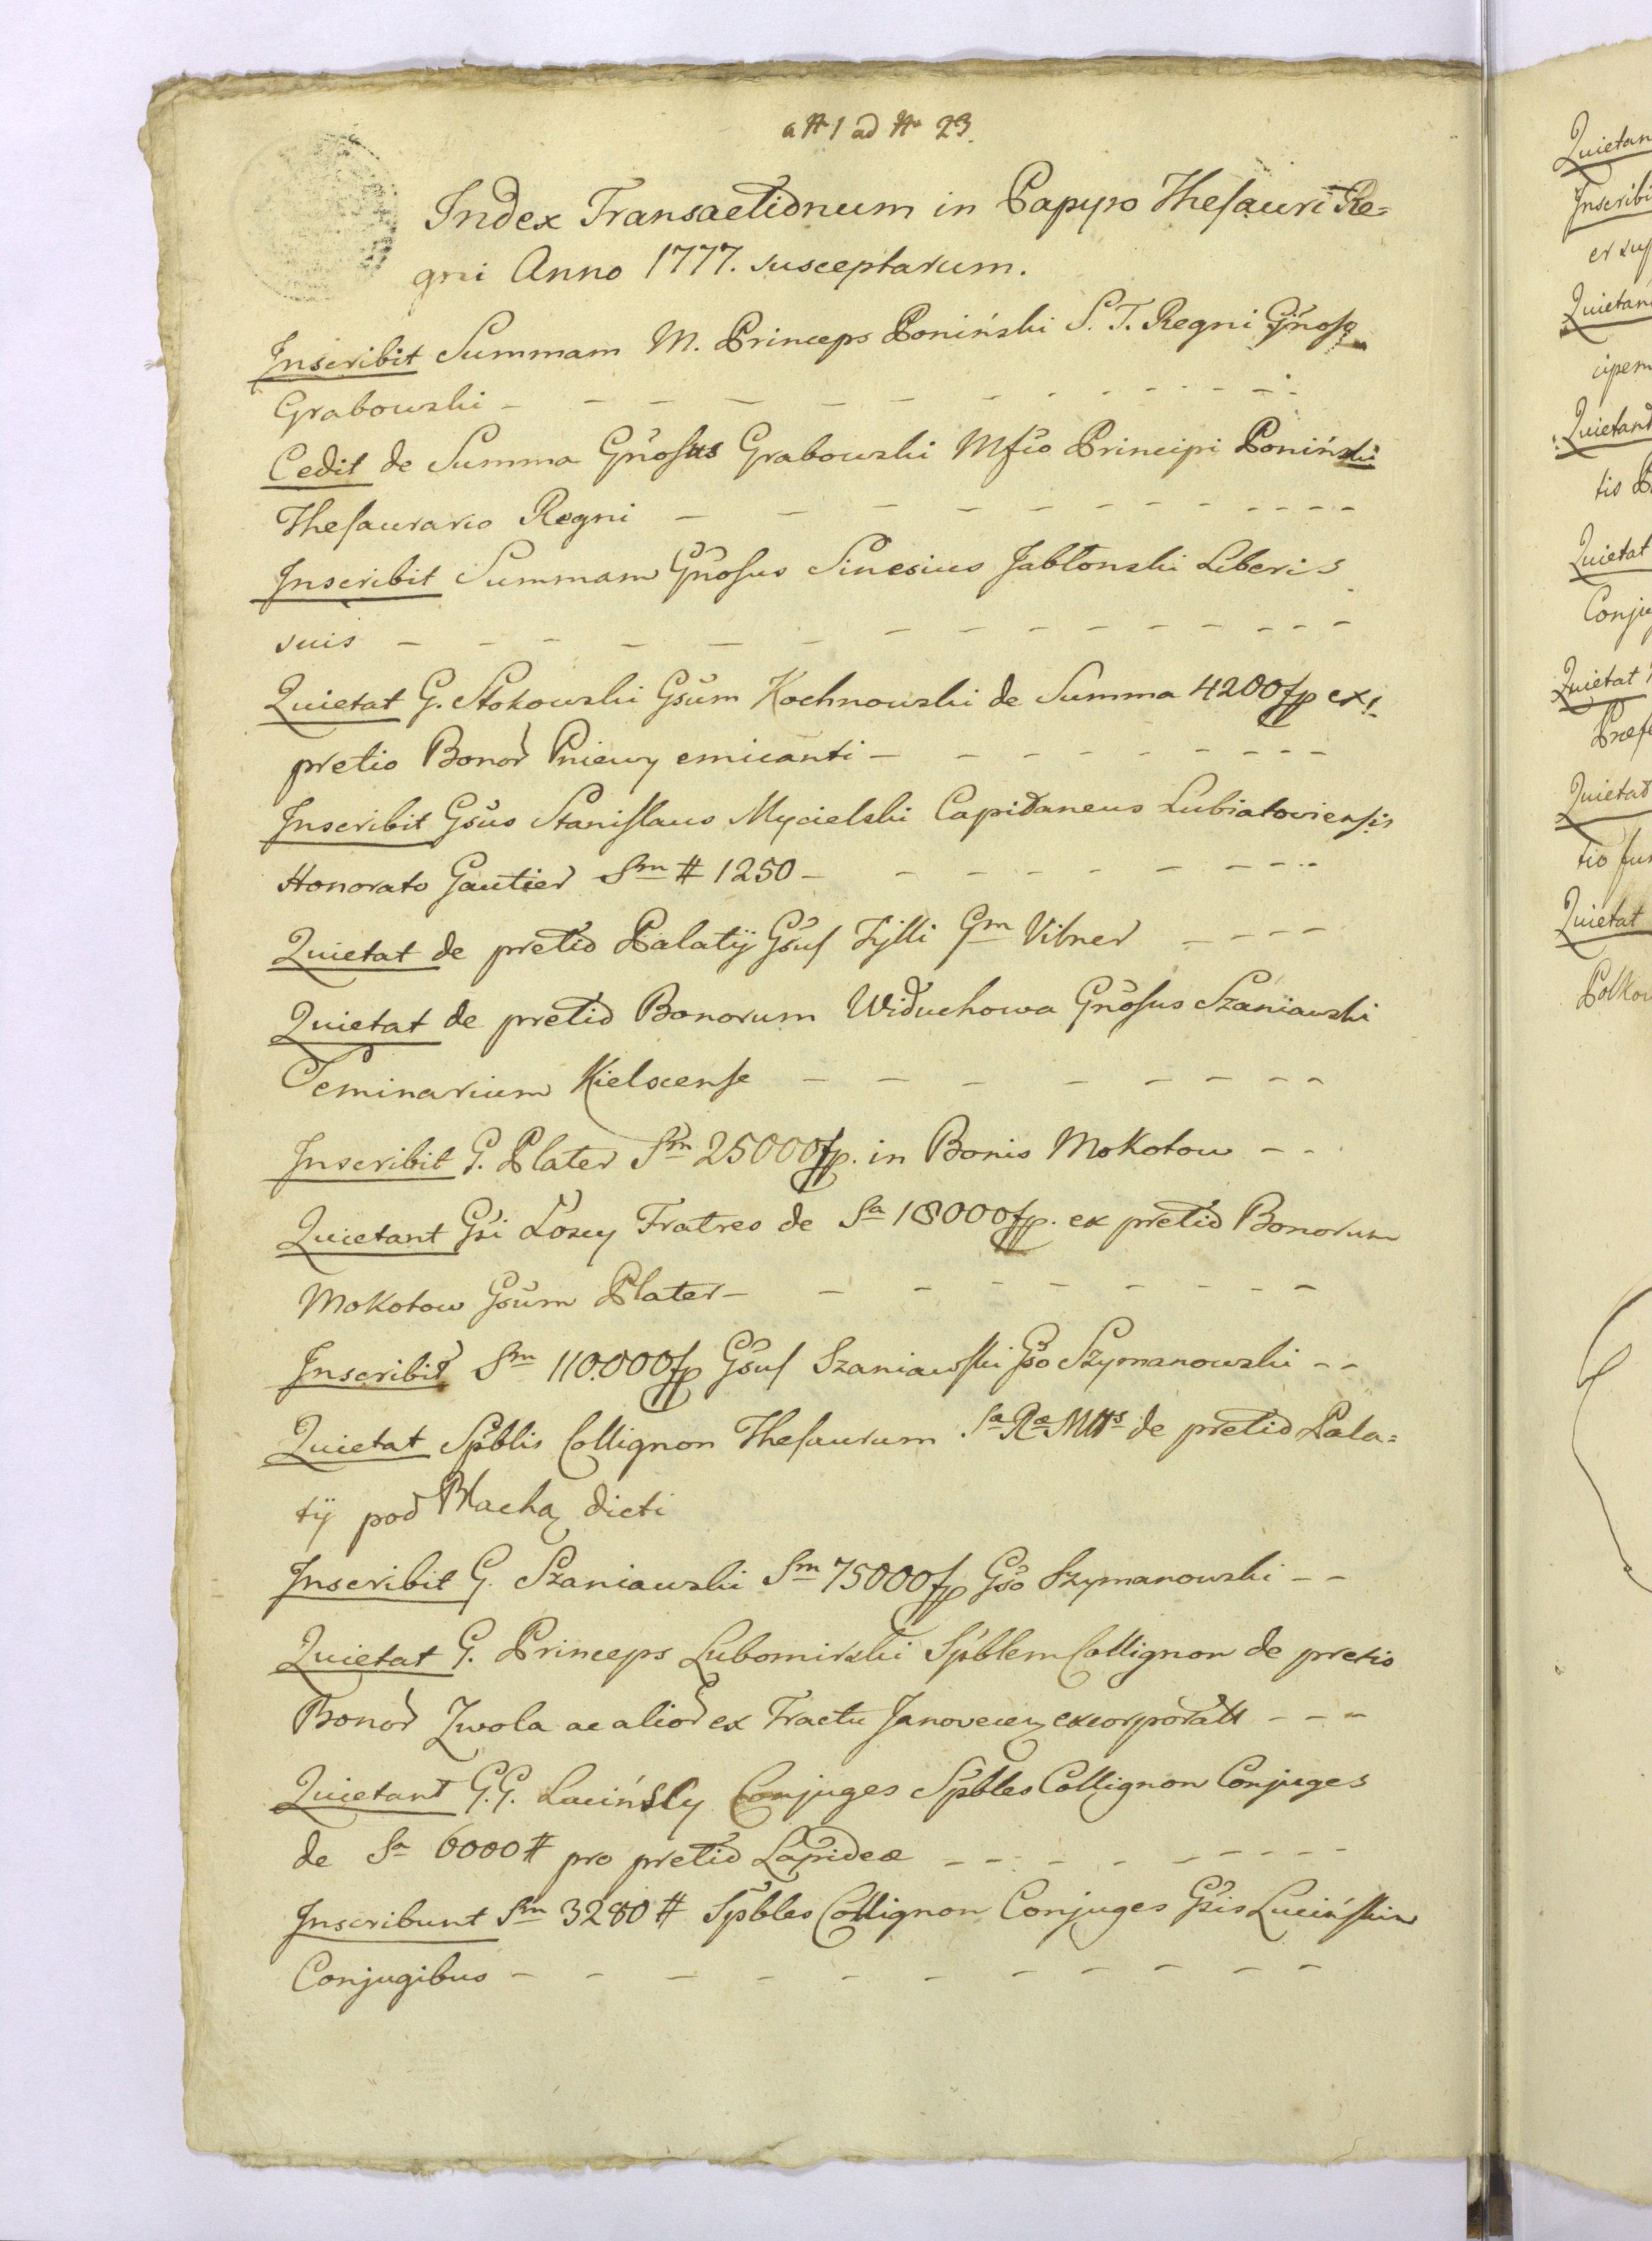 a # 1 ad # 23.
Index Transactionum in Papyro Thesauri Re=
gni Anno 1777. susceptarum.
Inscribit Summam M. Princeps Poniński S. T. Regni Gnoso
Grabowski - - - - - - - - - - - -
Cedit de Summa Gnosus Grabowski Mfco Principi Poniński
Thesaurario Regni - - - - - - - - - - - -
Inscribit Summam Gnosus Sinesius Jabłonski Liberis
suis - - - - - - - - - - - - - - -
Quietat G. Stokowski Gsum Kochnowski de Summa 4200 fp ex
pretio Bonor Pniewy emicanti - - - - - - - - -
Inscribit Gsus Stanislaus Mycielski Capitaneus Lubiatoviensis
Honorato Gautier Sm # 1250 - - - - - - - - -
Quietat de pretio Palatij Gsus Tylli Gm Vitner - - - -
Quietat de pretio Bonorum Widuchowa Gnosus Szaniawski
Seminarium Kielcense - - - - - - - - -
Inscribit G. Plater Sm 25000 fp. in Bonis Mokotow - -
Quietant Gsi Łoscy Fratres de Sa 18000 fp. ex pretio Bonorum
Mokotow Gsum Plater - - - - - - - - -
Inscribit Sm 110.000 fp Gsus Szaniawski Gso Szymanowski - -
Quietat Spblis Collignon Thesaurum Sa Ræ Mttis de pretio Pala=
tij pod Blachą dicti
Inscribit G. Szaniawski Sm 75000 fp Gso Szymanowski - -
Quietat G. Princeps Lubomirski Spblem Collignon de pretio
Bonor Zwola ac alior ex Tractu Janoveciey excorporatt - - -
Quietant G.G. Luciński Conjuges Spbles Collignon Conjuges
de Sa 6000 # pro pretio Lapideæ - - - - - - - - - -
Inscribunt Sm 3280 # Spbles Collignon Conjuges Gsis Lucińskim
Conjugibus - - - - - - - - - - - -
Quietan
Inscribi
Quietan
ipem
Quietant
tis
Quietat
Conju
Quietat
Præfe
Quietat
Quietat
Polkow